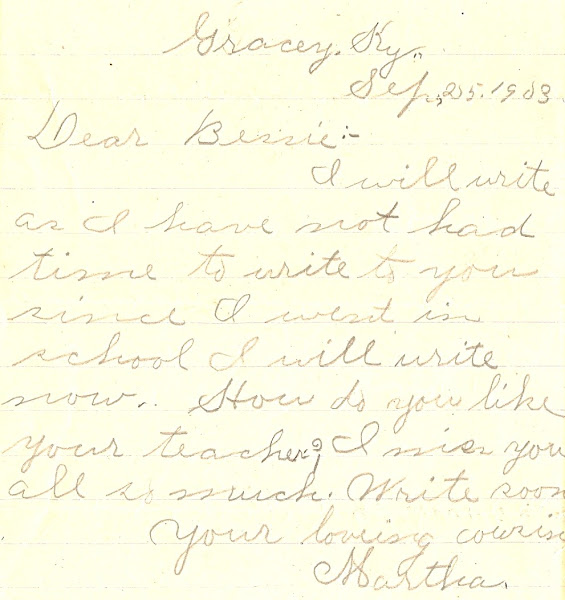 Gracey, Ky.,
Sep, 25. 1903.
Dear Bessie:-
I will write
as I have not had
time to write to you
since I went in
school I will write
now. How do you like
your teacher? I miss you
all so much. Write soon
your loveing cousin
Martha.